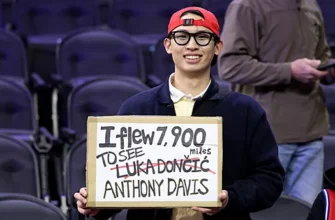 I flew 7,900
miles
TO SEE
LUKA DONČIĆ
ANTHONY DAVIS